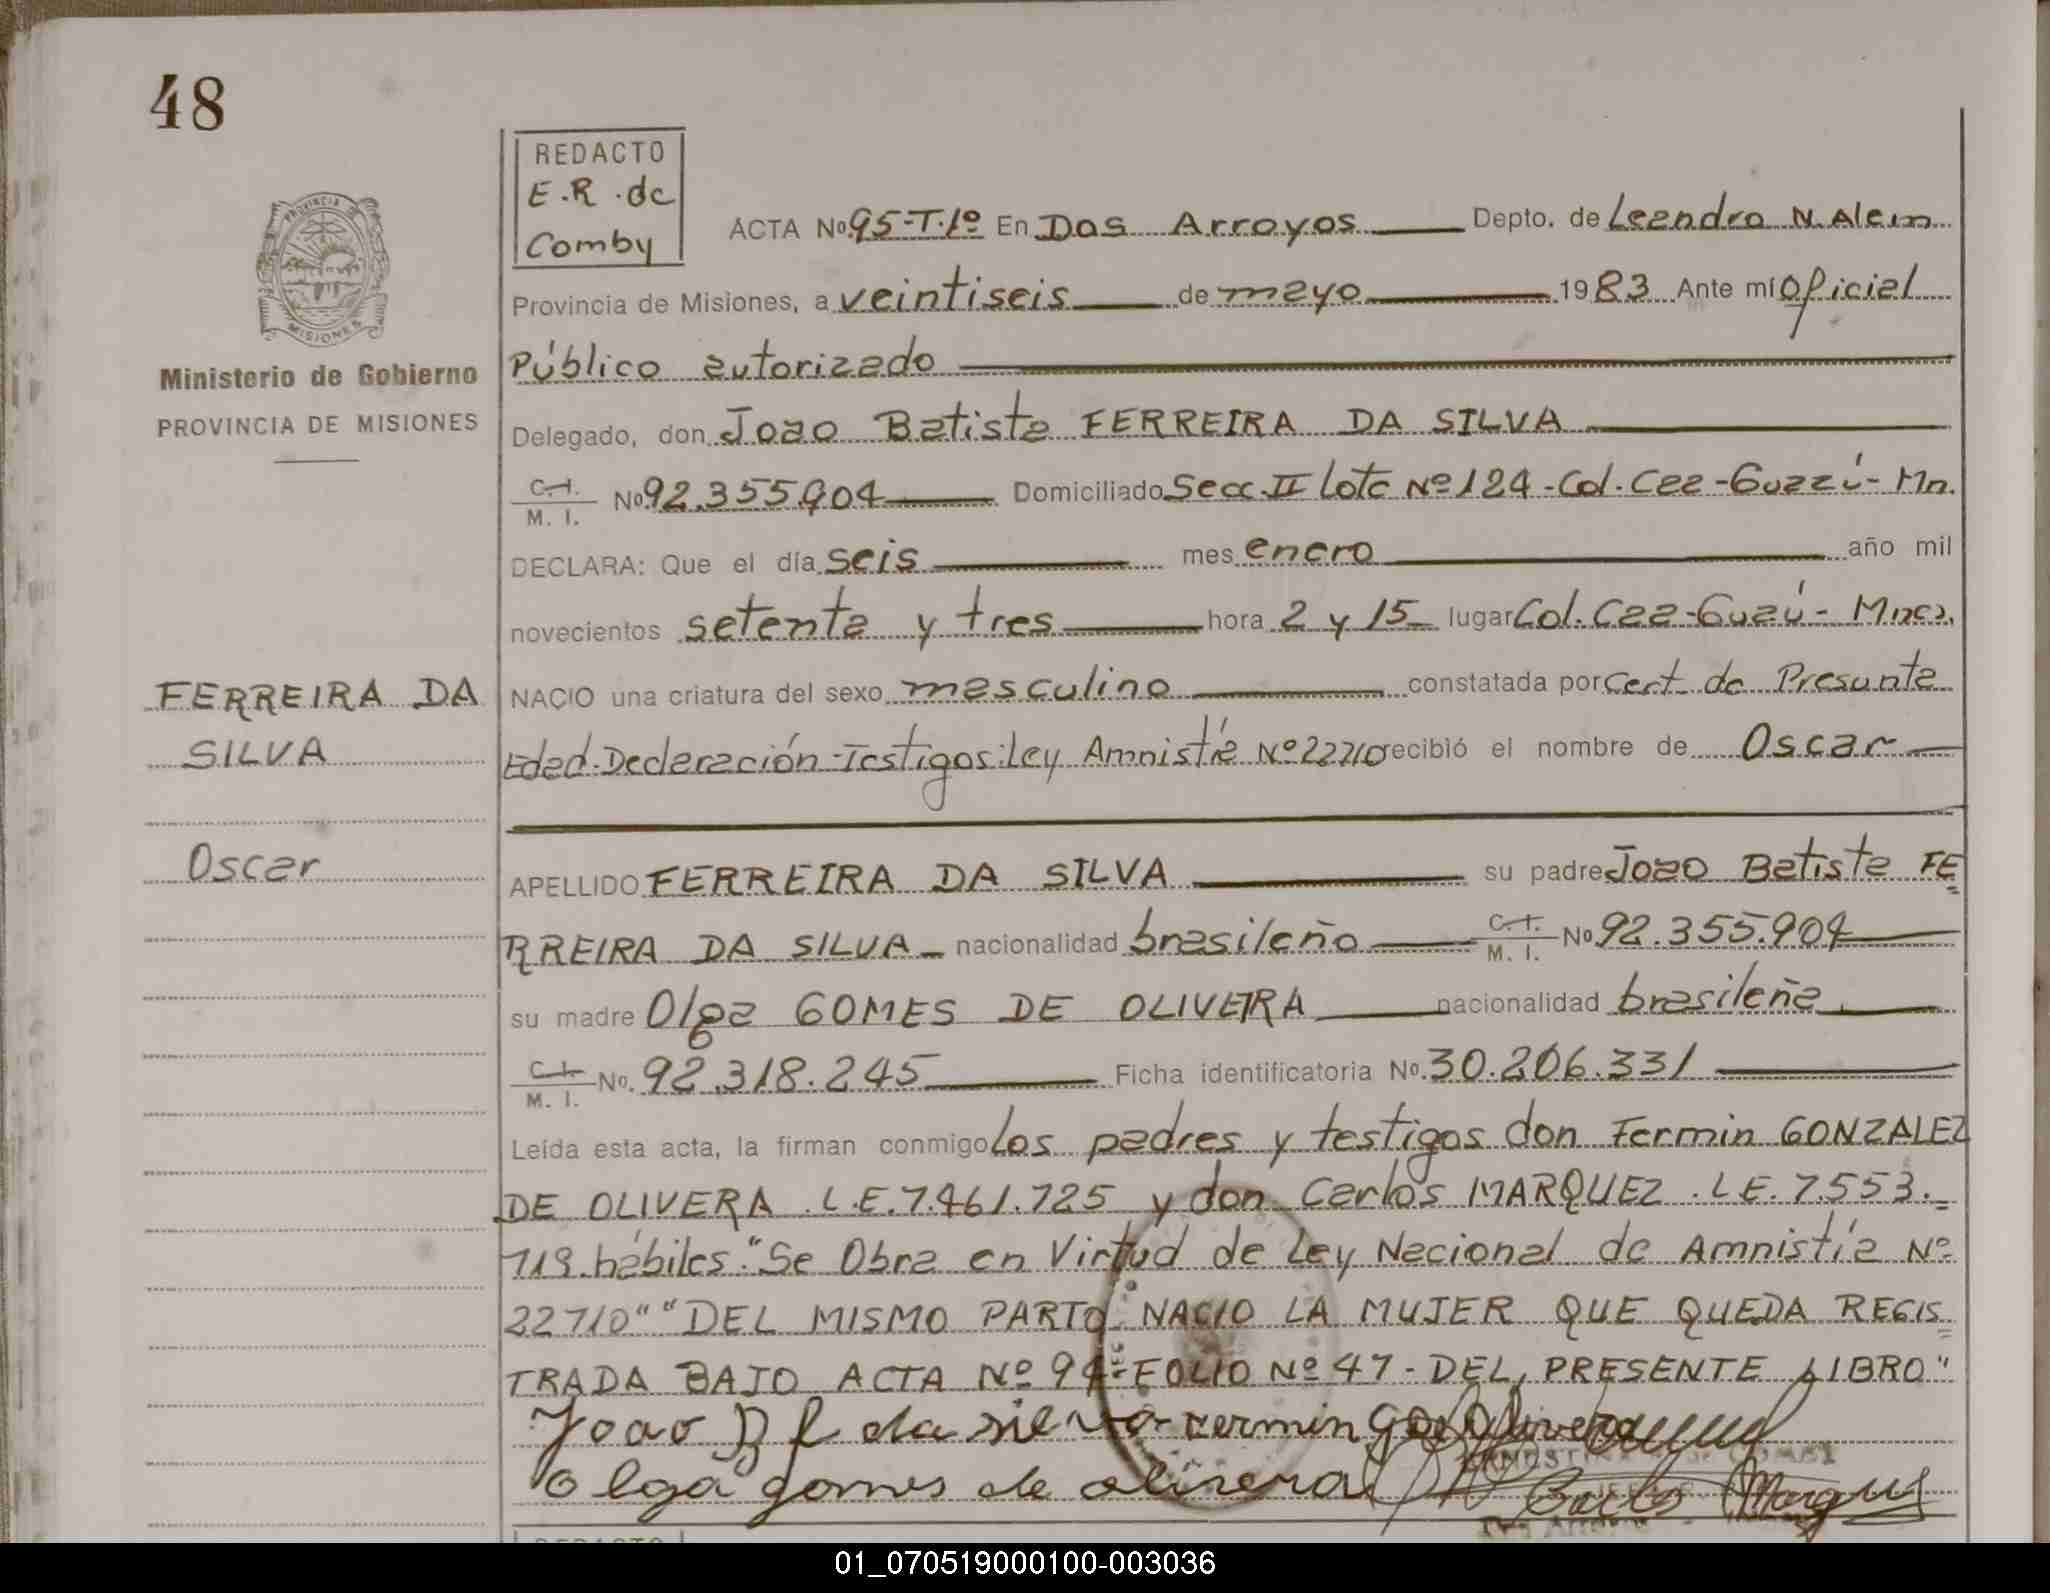 48
REDACTO
E.R. de
Comby
ACTA No. 95-T.1º En Dos Arroyos Depto. de Leandro N. Alem
Provincia de Misiones, a veintiseis de mayo 1983 Ante mí oficial
Público autorizado
Delegado, don Joao Batista FERREIRA DA SILVA
C.I. M. I. No. 92.355.904 Domiciliado Secc. II Lote Nº 124 - Col. Caa - Guazú - Mn.
DECLARA: Que el día seis mes enero año mil
novecientos setenta y tres hora 2 y 15 lugar Col. Caa-Guazú - Mnes.
NACIO una criatura del sexo masculino constatada por Cert de Presunta
Edad-Declaración-Testigos: Ley Amnistía Nº 22710 recibió el nombre de Oscar
APELLIDO FERREIRA DA SILVA su padre Joao Batista FE
RREIRA DA SILVA nacionalidad brasileño C.I. M. I. No. 92.355.904
su madre Olga GOMES DE OLIVEIRA nacionalidad brasileña
C.I. M. I. No. 92.318.245 Ficha identificatoria No. 30.206.331
Leída esta acta, la firman conmigo Los padres y testigos don Fermin GONZALEZ
DE OLIVERA L.E. 7.461.725 y don Carlos MARQUEZ. L.E. 7.553.
719. hábiles. "Se Obra en Virtud de Ley Nacional de Amnistía Nº
22710" "DEL MISMO PARTO NACIO LA MUJER QUE QUEDA REGIS
TRADA BAJO ACTA Nº 94-FOLIO Nº 47 - DEL PRESENTE LIBRO"
Joao B f da silva fermin Olivera
Olga gomes de olivera Carlos Marquez
PROVINCIA DE
MISIONES
Ministerio de Gobierno
PROVINCIA DE MISIONES
FERREIRA DA
SILVA
Oscar
REDACTO
01_070519000100-003036